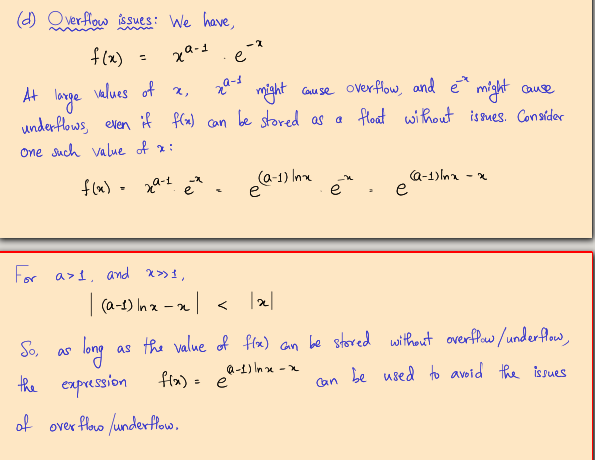 (d) Overflow issues: We have,
f(x) = x^{a-1} . e^{-x}
At large values of x, x^{a-1} might cause overflow, and e^{-x} might cause
underflows, even if f(x) can be stored as a float without issues. Consider
one such value of x:
f(x) = x^{a-1} e^{-x} = e^{(a-1) ln x} . e^{-x} = e^{(a-1) ln x - x}
For a>1, and x>>1,
| (a-1) ln x - x | < |x|
So, as long as the value of f(x) can be stored without overflow/underflow,
the expression f(x) = e^{(a-1) ln x - x} can be used to avoid the issues
of overflow/underflow.